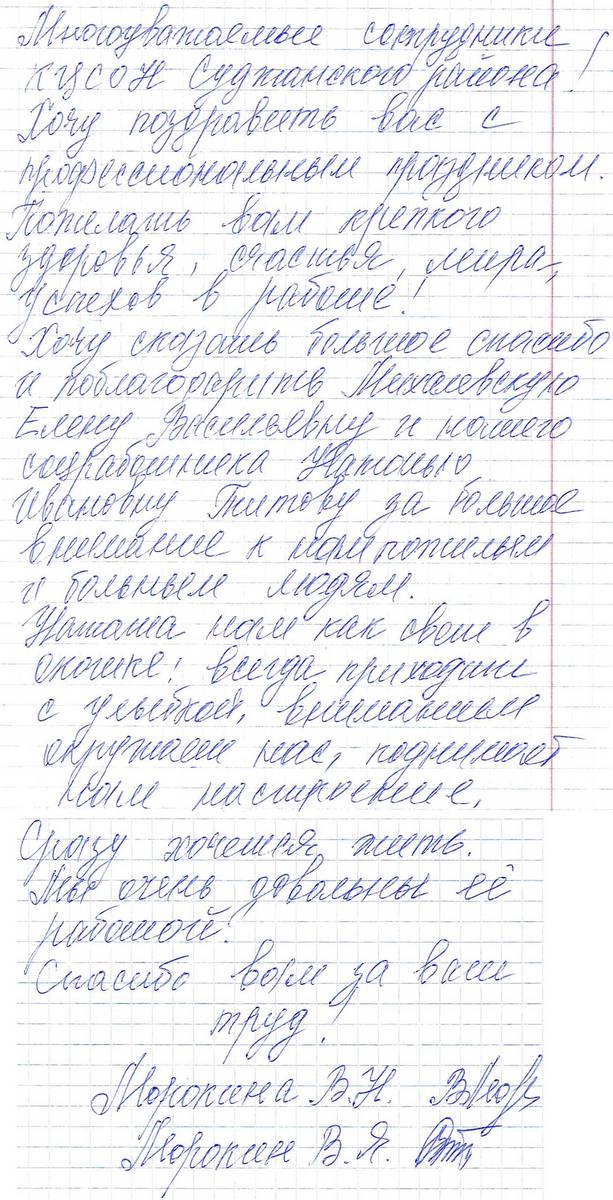 Многоуважаемые сотрудники
КЦСОН Суджанского района!
Хочу поздравить вас с
профессиональным праздником.
Пожелать вам крепкого
здоровья, счастья, мира,
успехов в работе!
Хочу сказать большое спасибо
и поблагодарить Михалевскую
Елену Васильевну и нашего
соцработника Наталью
Ивановну Титову за большое
внимание к нам пожилым
и больным людям.
Наташа нам как свет в
окошке: всегда приходит
с улыбкой, вниманием
окружает нас, поднимает
нам настроение,
Сразу хочется жить.
Мы очень довольны её
работой.
Спасибо вам за ваш
труд!
В.Н.
В.Я.